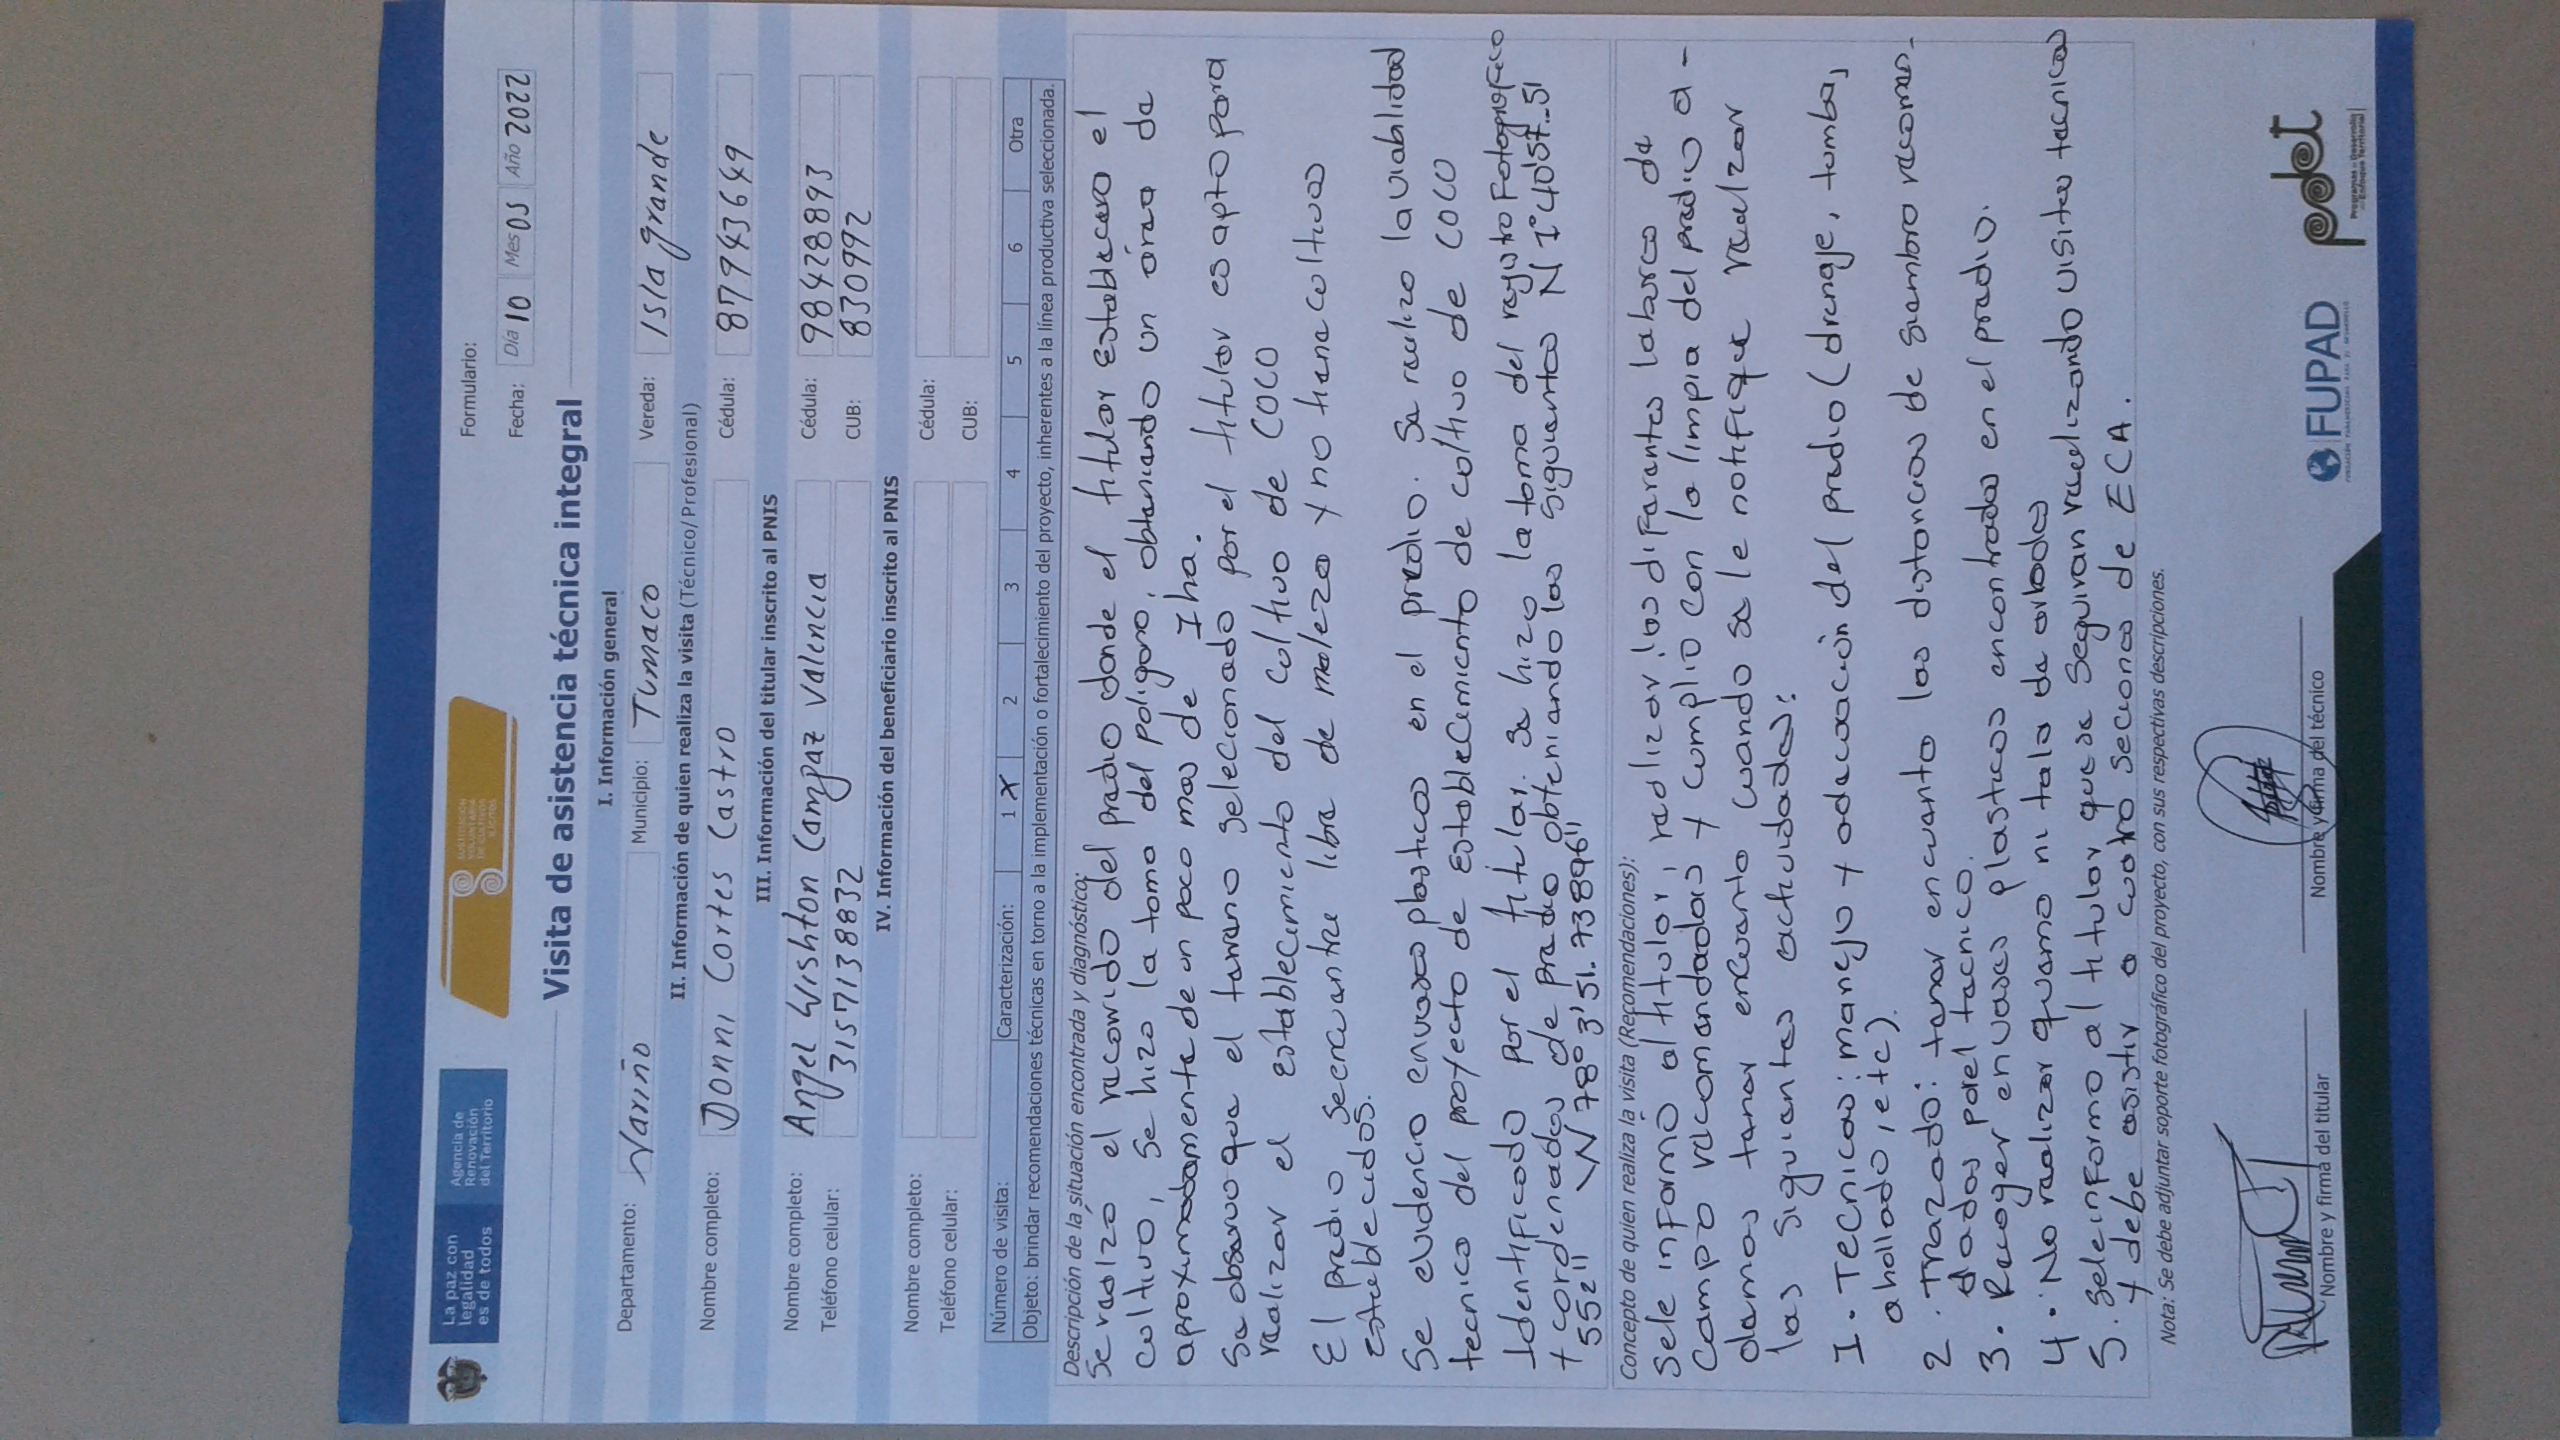 La paz con
legalidad
es de todos
Agencia de
Renovación
del Territorio
SUSTITUCIÓN
VOLUNTARIA
DE CULTIVOS
ILÍCITOS
Formulario:
Fecha: Día 10 Mes 05 Año 2022
Visita de asistencia técnica integral
I. Información general
Departamento: Nariño Municipio: Tumaco Vereda: Isla grande
II. Información de quien realiza la visita (Técnico/Profesional)
Nombre completo: Jonni Cortes Castro Cédula: 87943649
III. Información del titular inscrito al PNIS
Nombre completo: Angel Wishton Campaz Valencia Cédula: 98428893
Teléfono celular: 3157138832 CUB: 830992
IV. Información del beneficiario inscrito al PNIS
Nombre completo: Cédula:
Teléfono celular: CUB:
Número de visita: Caracterización: 1 X 2 3 4 5 6 Otra
Objeto: brindar recomendaciones técnicas en torno a la implementación o fortalecimiento del proyecto, inherentes a la línea productiva seleccionada.
Descripción de la situación encontrada y diagnóstico:
Se realizo el recorrido del predio donde el titular establecera el
cultivo, Se hizo la toma del poligono, obteniendo un area de
aproximadamente de un poco mas de 1 ha.
Se observo que el terreno selecionado por el titular es apto para
realizar el establecimiento del cultivo de COCO
El predio se encuentre libre de maleza y no tiene cultivos
establecidos.
Se evidencio envases plasticos en el predio. Se realizo la viablidad
tecnico del proyecto de establecimiento de cultivo de COCO
Identificado por el titular. Se hizo la toma del registro Fotografico
y cordenadas de predio obteniando las siguientes N 1° 40'57..51
552" W 78° 3' 51.73896"
Concepto de quien realiza la visita (Recomendaciones):
Se le informo al titular, realizar las diferentes labores de
Campo recomendadas y cumplio con la limpia del predio a-
demas tener encuanto cuando se le notifique realzar
las siguientes actividades:
1. Tecnicas: manejo y adecuación del predio (drenaje, tumba,
ahollado, etc).
2. Trazado: tener encuanto las distancias de siembra recomen-
dadas por el tecnico.
3. Recoger envases plasticos encontrados en el predio.
4. No realizar quema ni tala de arboles
5. Se le informo al titular que se seguiran realizando visitas tecnicas
y debe asistir a cuatro seciones de ECA.
Nota: Se debe adjuntar soporte fotográfico del proyecto, con sus respectivas descripciones.
Nombre y firma del titular
Nombre y firma del técnico
FUPAD
pdet
Programas de Desarrollo
con Enfoque Territorial